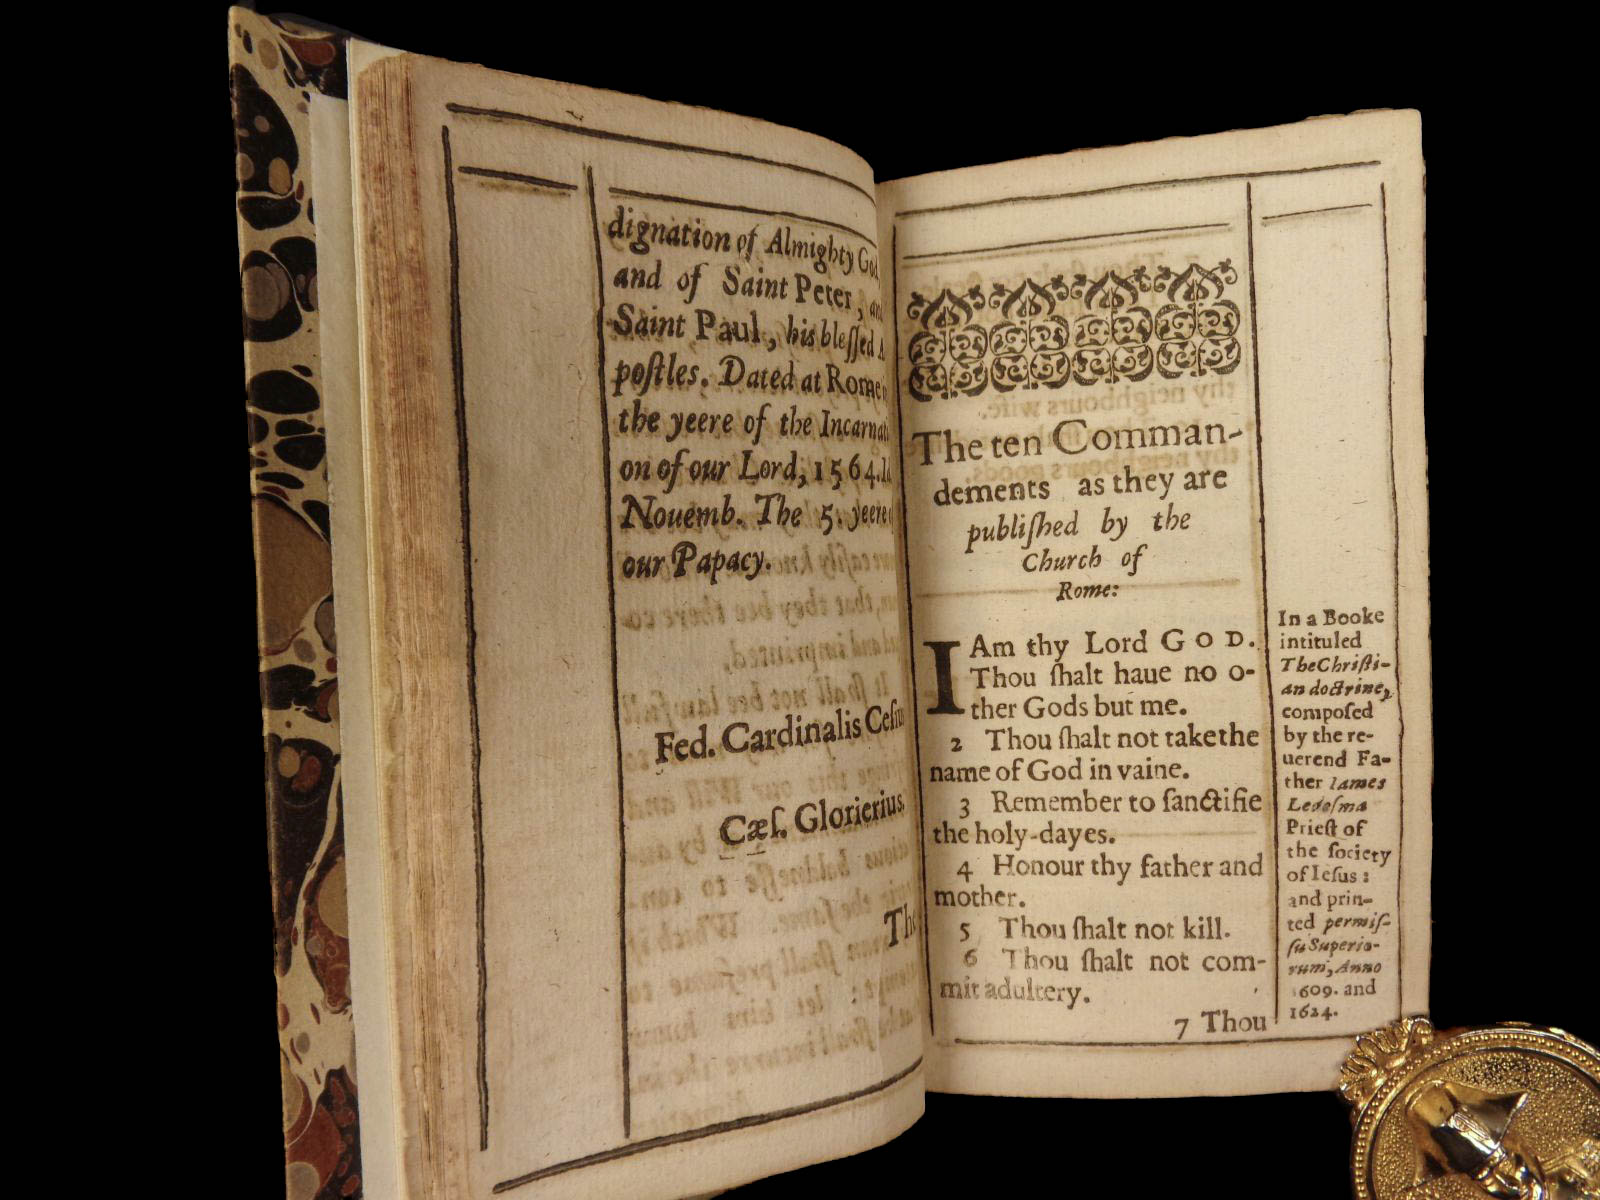 dignation of Almighty God,
and of Saint Peter, and
Saint Paul, his bleſſed A
poſtles. Dated at Rome
the yeere of the Incarnati
on of our Lord, 1564.
Nouemb. The 5. yeere
our Papacy.
Fed. Cardinalis Ceſius
Cæſ. Glorierius.
The
The ten Comman-
dements as they are
publiſhed by the
Church of
Rome:
I Am thy Lord GOD.
Thou ſhalt haue no o-
ther Gods but me.
2 Thou ſhalt not take the
name of God in vaine.
3 Remember to ſanctifie
the holy-dayes.
4 Honour thy father and
mother.
5 Thou ſhalt not kill.
6 Thou ſhalt not com-
mit adultery.
7 Thou
In a Booke
intituled
The Chriſti-
an doctrine,
compoſed
by the re-
uerend Fa-
ther Iames
Ledeſma
Prieſt of
the ſociety
of Ieſus:
and prin-
ted permiſ-
ſu Superio-
rum, Anno
1609. and
1624.